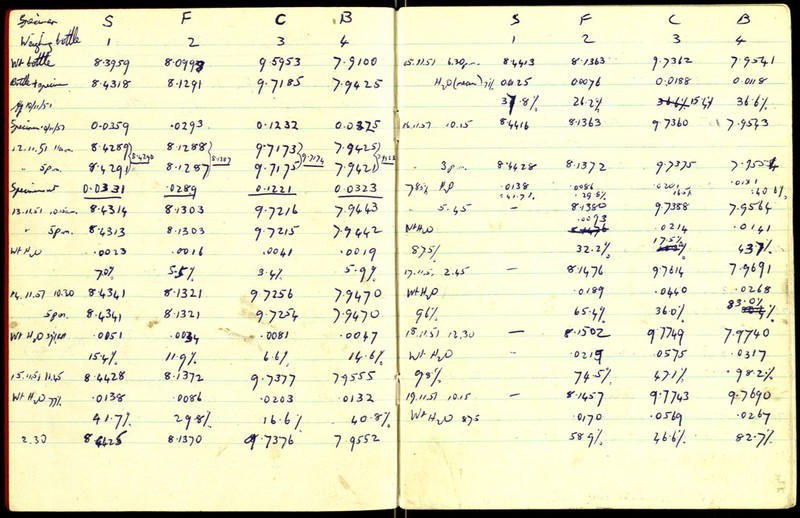 Specimen S F C B
Weighing bottle 1 2 3 4
Wt bottle 8.3959 8.0993 9.5953 7.9100
Bottle + specimen 8.4318 8.1291 9.7185 7.9425
Specimen 0.0359 .0293 0.1232 0.0375
12.11.51 8.4289 8.1288 9.7173 7.9425
" 5pm. 8.4291 8.1287 9.7175 7.9421
8.4290 8.1287 9.7174
Specimen wt 0.0331 .0289 0.1221 0.0323
13.11.51 8.4314 8.1303 9.7216 7.9443
" 5pm. 8.4313 8.1303 9.7215 7.9442
Wt H2O .0023 .0016 .0041 .0019
7.0% 5.5% 3.4% 5.9%
14.11.51 10.30 8.4341 8.1321 9.7256 7.9470
5pm. 8.4341 8.1321 9.7254 7.9470
Wt H2O .0051 .0034 .0081 .0047
15.4% 11.9% 6.6% 14.6%
15.11.51 11.45 8.4428 8.1372 9.7377 7.9555
Wt H2O 77% .0138 .0086 .0203 .0132
41.7% 29.8% 16.6% 40.8%
2.30 8.4425 8.1370 9.7376 7.9552
S F C B
1 2 3 4
15.11.51 6.30pm. 8.4413 8.1363 9.7362 7.9541
H2O (mean) 71% 0.0125 0.0076 0.0188 0.0118
37.8% 26.2% 36.6% 15.4% 36.6%
16.11.51 10.15 8.4416 8.1363 9.7360 7.9543
" 3pm. 8.4428 8.1372 9.7375 7.9554
78.5% H2O .0138 .0086 .0201 .0131
41.7% 29.8%
" 5.45 – 8.1380 9.7388 7.9564
.0093
Wt H2O .0214 .0141
17.5%
87.5% 32.2% 43.7%
17.11.51 2.45 – 8.1476 9.7614 7.9691
Wt H2O .0189 .0440 .0268
83.0%
96% 65.4% 36.0%
18.11.51 12.30 – 8.1502 9.7749 7.9740
Wt H2O – .0219 .0575 .0317
98% 74.5% 47.1% 98.2%
19.11.51 10.15 – 8.1457 9.7743 9.7690
Wt H2O 87.5 .0170 .0569 .0267
58.9% 46.6% 82.7%